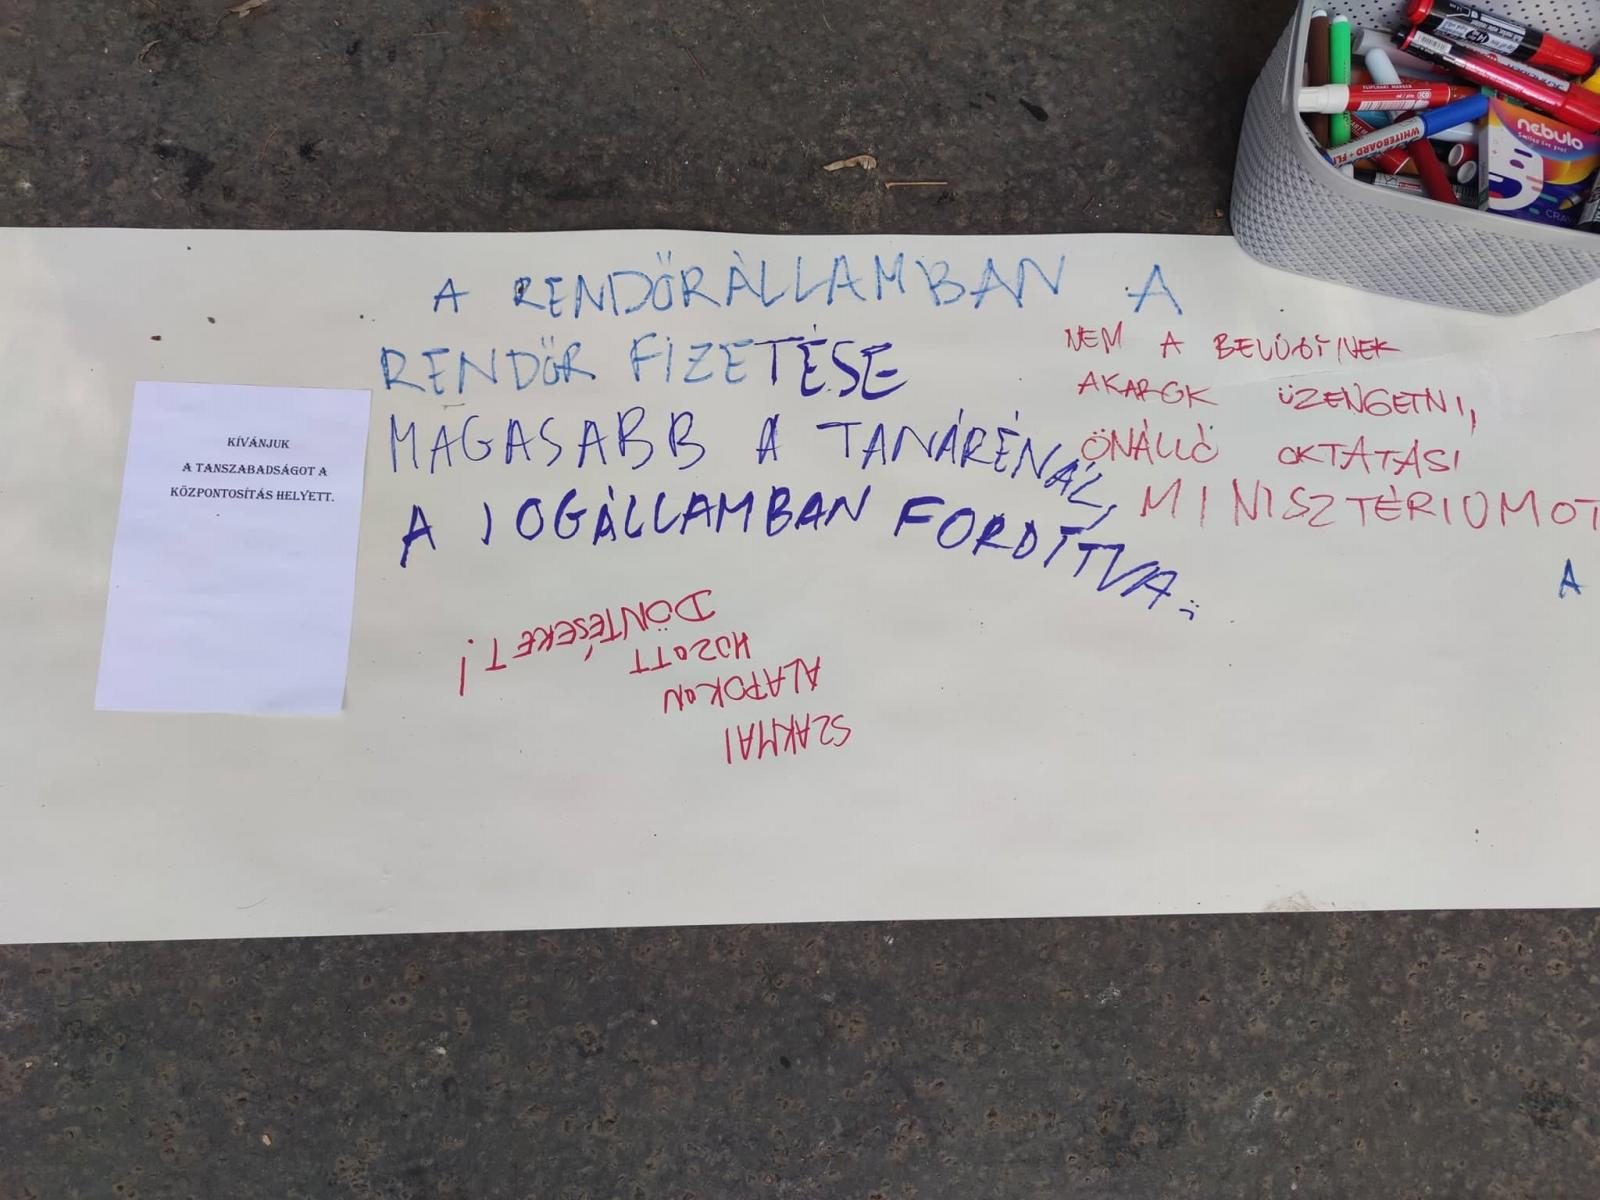 KÍVÁNJUK
A TANSZABADSÁGOT A
KÖZPONTOSÍTÁS HELYETT.
A RENDŐRÁLLAMBAN A
RENDŐR FIZETÉSE
MAGASABB A TANÁRÉNÁL,
A JOGÁLLAMBAN FORDÍTVA.
NEM A BELÜGYNEK
AKAROK ÜZENGETNI,
ÖNÁLLÓ OKTATÁSI
MINISZTÉRIUMOT
A
SZAKMAI
ALAPOKON
HOZOTT
DÖNTÉSEKET!
FLIPCHART MARKER ICO
WHITEBOARD + FLI
nebulo
CRA